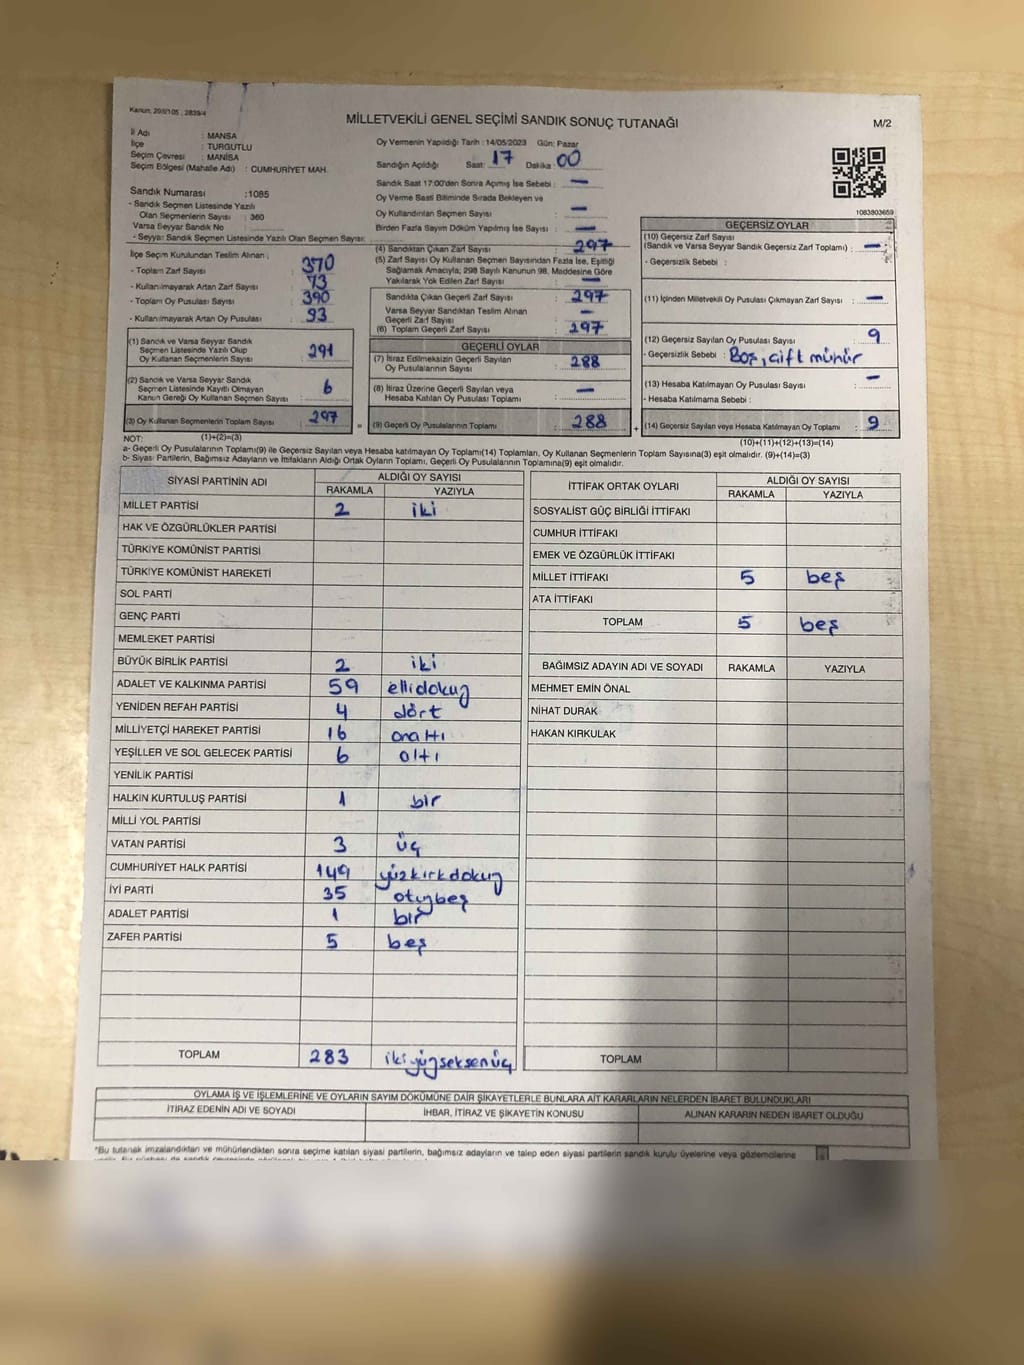 Kanun: 298/105 , 2839/4
MİLLETVEKİLİ GENEL SEÇİMİ SANDIK SONUÇ TUTANAĞI
M/2
İl Adı : MANİSA
İlçe : TURGUTLU
Seçim Çevresi : MANİSA
Seçim Bölgesi (Mahalle Adı) : CUMHURİYET MAH.
Sandık Numarası :1085
- Sandık Seçmen Listesinde Yazılı
Olan Seçmenlerin Sayısı : 360
Varsa Seyyar Sandık No :
- Seyyar Sandık Seçmen Listesinde Yazılı Olan Seçmen Sayısı:
İlçe Seçim Kurulundan Teslim Alınan ;
- Toplam Zarf Sayısı : 370
- Kullanılmayarak Artan Zarf Sayısı : 73
- Toplam Oy Pusulası Sayısı : 390
- Kullanılmayarak Artan Oy Pusulası : 93
(1) Sandık ve Varsa Seyyar Sandık
Seçmen Listesinde Yazılı Olup
Oy Kullanan Seçmenlerin Sayısı : 291
(2) Sandık ve Varsa Seyyar Sandık
Seçmen Listesinde Kayıtlı Olmayan
Kanun Gereği Oy Kullanan Seçmen Sayısı : 6
(3) Oy Kullanan Seçmenlerin Toplam Sayısı : 297
Oy Vermenin Yapıldığı Tarih : 14/05/2023 Gün: Pazar
Sandığın Açıldığı Saat: 17 Dakika : 00
Sandık Saat 17:00'den Sonra Açılmış İse Sebebi : —
Oy Verme Saati Bitiminde Sırada Bekleyen ve
Oy Kullandırılan Seçmen Sayısı : —
Birden Fazla Sayım Döküm Yapılmış İse Sayısı : —
(4) Sandıktan Çıkan Zarf Sayısı : 297
(5) Zarf Sayısı Oy Kullanan Seçmen Sayısından Fazla İse, Eşitliği
Sağlamak Amacıyla; 298 Sayılı Kanunun 98. Maddesine Göre
Yakılarak Yok Edilen Zarf Sayısı : —
Sandıkta Çıkan Geçerli Zarf Sayısı : 297
Varsa Seyyar Sandıktan Teslim Alınan
Geçerli Zarf Sayısı : —
(6) Toplam Geçerli Zarf Sayısı : 297
GEÇERLİ OYLAR
(7) İtiraz Edilmeksizin Geçerli Sayılan
Oy Pusulalarının Sayısı : 288
(8) İtiraz Üzerine Geçerli Sayılan veya
Hesaba Katılan Oy Pusulası Toplamı : —
= (9) Geçerli Oy Pusulalarının Toplamı : 288 +
1083803659
GEÇERSİZ OYLAR
(10) Geçersiz Zarf Sayısı
(Sandık ve Varsa Seyyar Sandık Geçersiz Zarf Toplamı) : —
- Geçersizlik Sebebi :
(11) İçinden Milletvekili Oy Pusulası Çıkmayan Zarf Sayısı : —
(12) Geçersiz Sayılan Oy Pusulası Sayısı : 9
- Geçersizlik Sebebi : Boş, çift mühür
(13) Hesaba Katılmayan Oy Pusulası Sayısı : —
- Hesaba Katılmama Sebebi :
(14) Geçersiz Sayılan veya Hesaba Katılmayan Oy Toplamı : 9
NOT: (1)+(2)=(3)
(10)+(11)+(12)+(13)=(14)
a- Geçerli Oy Pusulalarının Toplamı(9) ile Geçersiz Sayılan veya Hesaba katılmayan Oy Toplamı(14) Toplamları, Oy Kullanan Seçmenlerin Toplam Sayısına(3) eşit olmalıdır. (9)+(14)=(3)
b- Siyasi Partilerin, Bağımsız Adayların ve İttifakların Aldığı Ortak Oyların Toplamı, Geçerli Oy Pusulalarının Toplamına(9) eşit olmalıdır.
SİYASİ PARTİNİN ADI ALDIĞI OY SAYISI
RAKAMLA YAZIYLA
MİLLET PARTİSİ 2 iki
HAK VE ÖZGÜRLÜKLER PARTİSİ
TÜRKİYE KOMÜNİST PARTİSİ
TÜRKİYE KOMÜNİST HAREKETİ
SOL PARTİ
GENÇ PARTİ
MEMLEKET PARTİSİ
BÜYÜK BİRLİK PARTİSİ 2 iki
ADALET VE KALKINMA PARTİSİ 59 ellidokuz
YENİDEN REFAH PARTİSİ 4 dört
MİLLİYETÇİ HAREKET PARTİSİ 16 onaltı
YEŞİLLER VE SOL GELECEK PARTİSİ 6 altı
YENİLİK PARTİSİ
HALKIN KURTULUŞ PARTİSİ 1 bir
MİLLİ YOL PARTİSİ
VATAN PARTİSİ 3 üç
CUMHURİYET HALK PARTİSİ 149 yüzkırkdokuz
İYİ PARTİ 35 otuzbeş
ADALET PARTİSİ 1 bir
ZAFER PARTİSİ 5 beş
TOPLAM 283 ikiyüzseksenüç
İTTİFAK ORTAK OYLARI ALDIĞI OY SAYISI
RAKAMLA YAZIYLA
SOSYALİST GÜÇ BİRLİĞİ İTTİFAKI
CUMHUR İTTİFAKI
EMEK VE ÖZGÜRLÜK İTTİFAKI
MİLLET İTTİFAKI 5 beş
ATA İTTİFAKI
TOPLAM 5 beş
BAĞIMSIZ ADAYIN ADI VE SOYADI RAKAMLA YAZIYLA
MEHMET EMİN ÖNAL
NİHAT DURAK
HAKAN KIRKULAK
TOPLAM
OYLAMA İŞ VE İŞLEMLERİNE VE OYLARIN SAYIM DÖKÜMÜNE DAİR ŞİKAYETLERLE BUNLARA AİT KARARLARIN NELERDEN İBARET BULUNDUKLARI
İTİRAZ EDENİN ADI VE SOYADI İHBAR, İTİRAZ VE ŞİKAYETİN KONUSU ALINAN KARARIN NEDEN İBARET OLDUĞU
*Bu tutanak imzalandıktan ve mühürlendikten sonra seçime katılan siyasi partilerin, bağımsız adayların ve talep eden siyasi partilerin sandık kurulu üyelerine veya gözlemcilerine